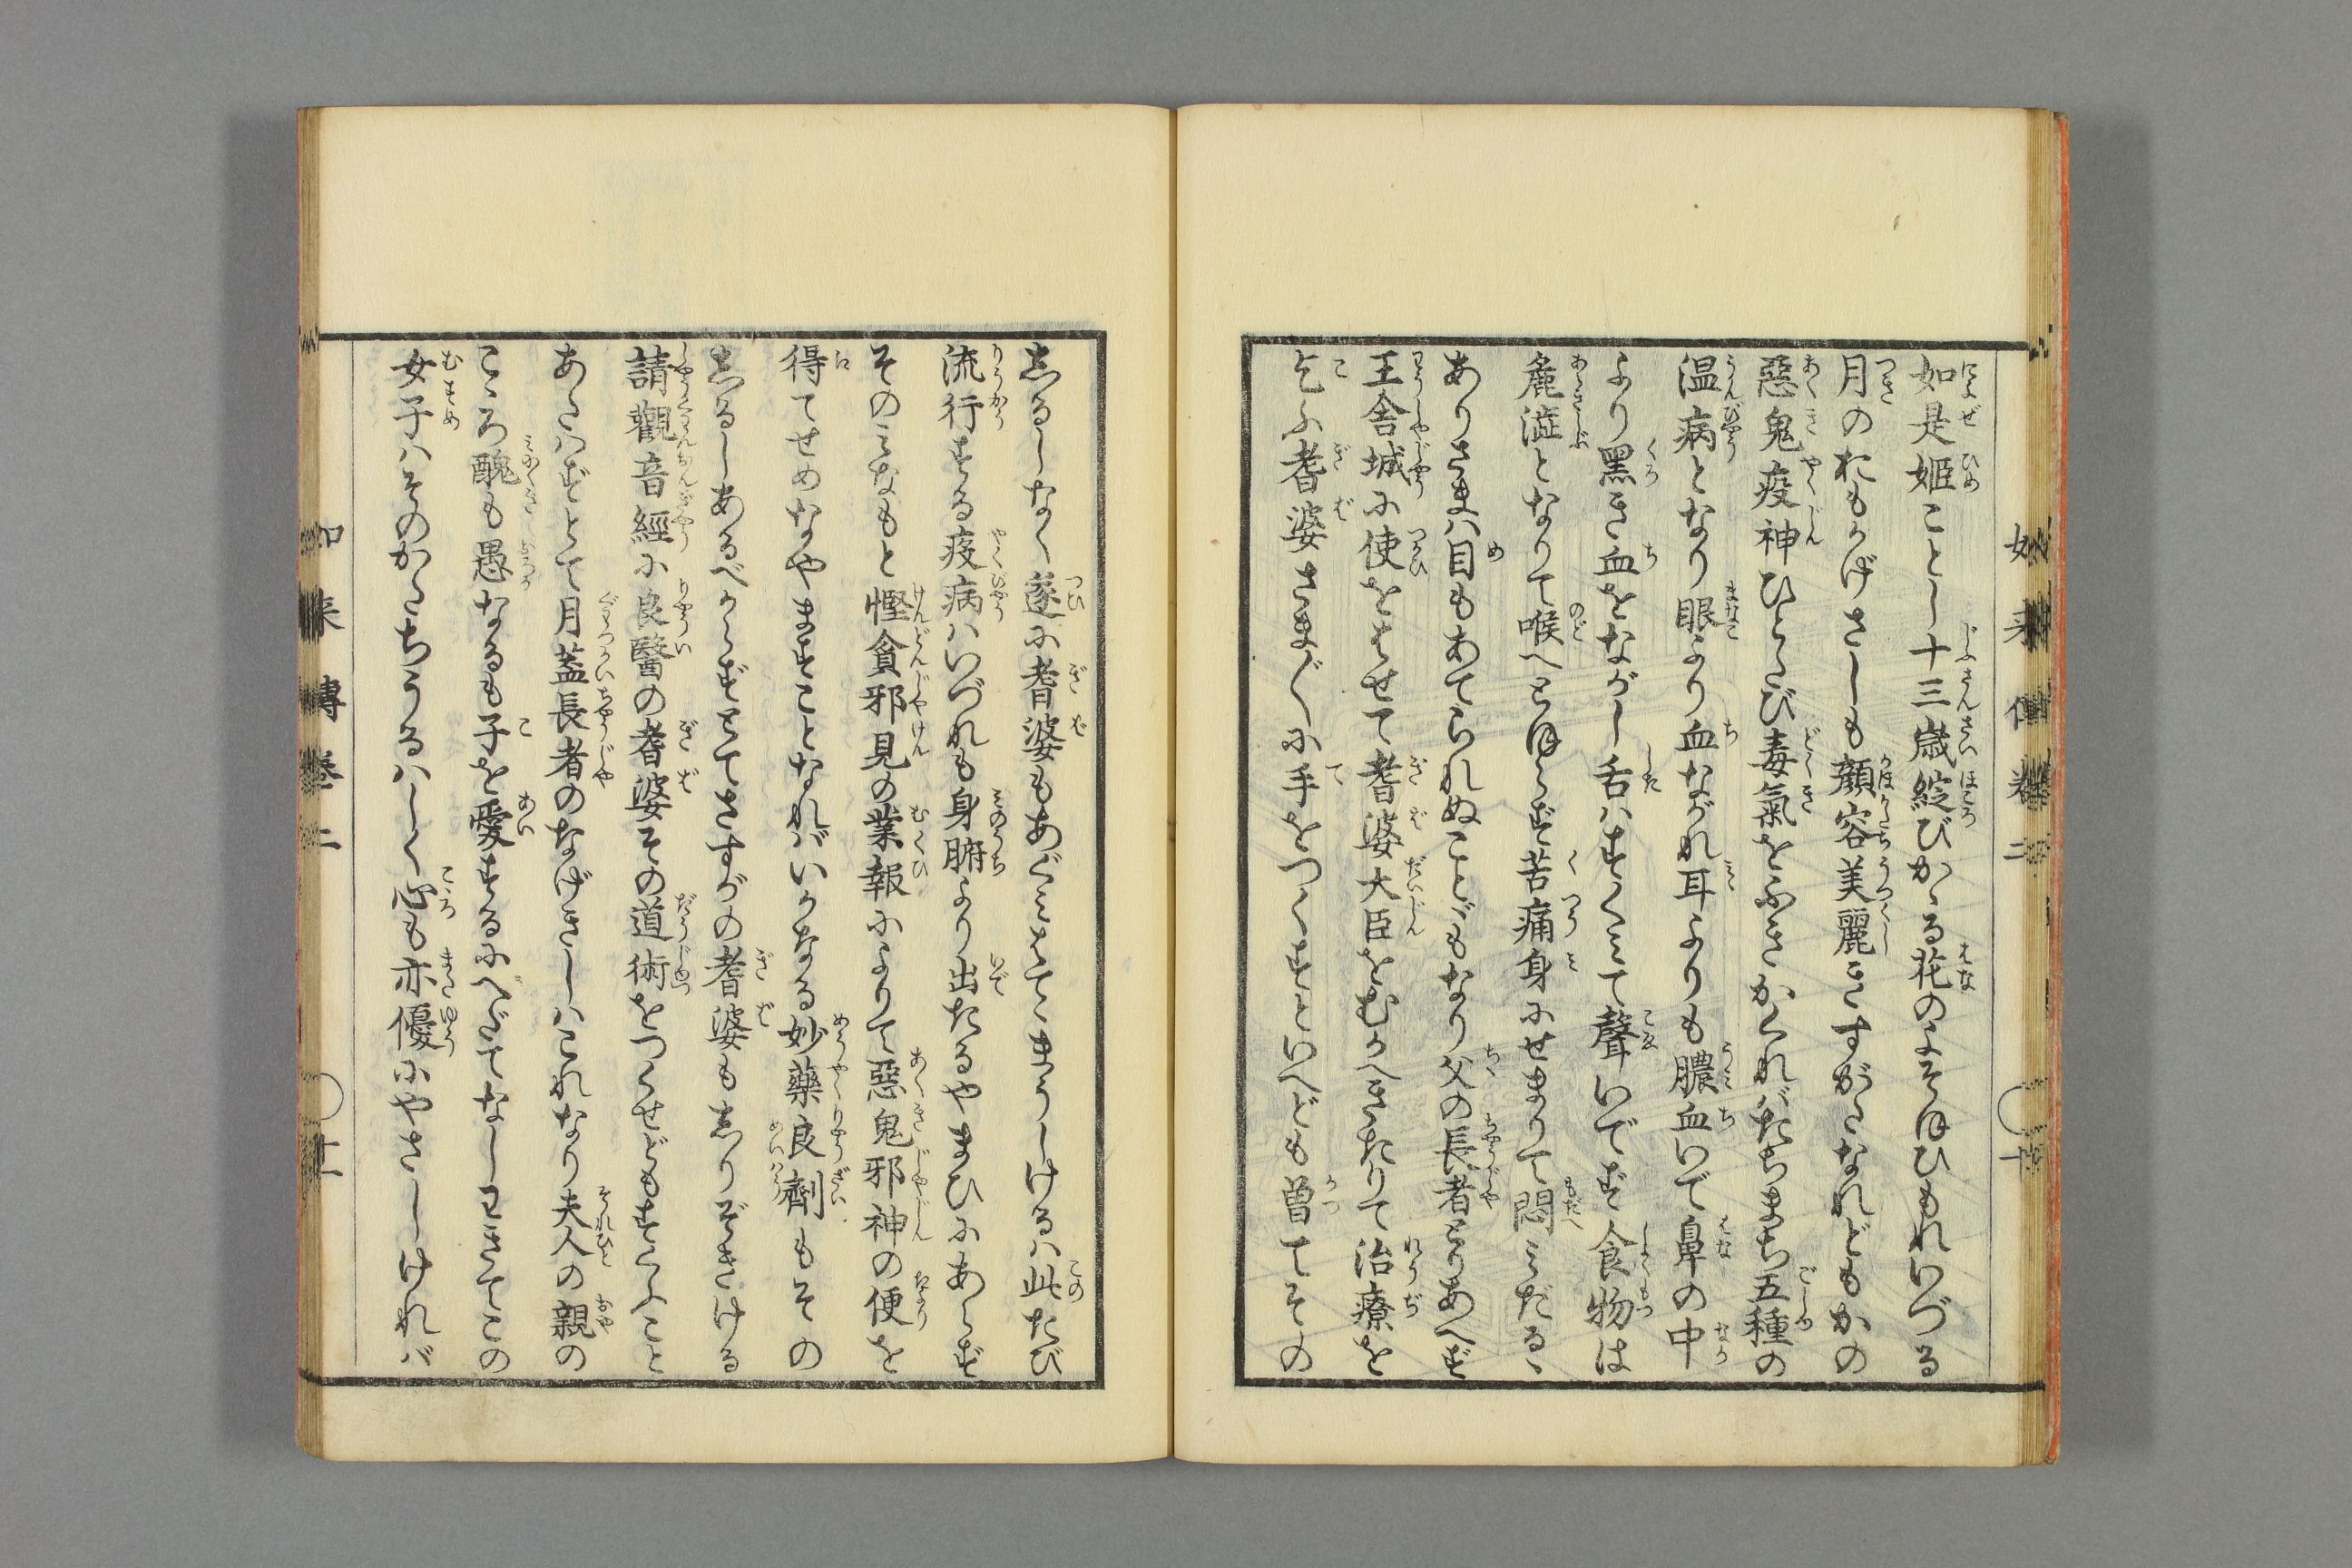 如是姫ことし十三歳綻びかゝる花のよそほひもれいづる
月のおもかげさしも顔容美麗きすがたなれどもかの
惡鬼疫神ひとたび毒氣をふきかくればたちまち五種の
温病となり眼より血ながれ耳よりも膿血いで鼻の中
より黑き血をながし舌はすくみて聲いでず食物は
麁澁となりて喉へとほらず苦痛身にせまりて悶みだるゝ
ありさまは目もあてられぬことどもなり父の長者とりあへず
王舎城に使をはせて耆婆大臣をむかへきたりて治療を
乞ふ耆婆さま〴〵に手をつくすといへども曽てその
しるしなく遂に耆婆もあぐみはてゝまうしけるは此たび
流行する疫病はいづれも身腑より出たるやまひにあらず
そのみなもと慳貪邪見の業報によりて惡鬼邪神の便を
得てせめなやますことなればいかなる妙藥良劑もその
しるしあるべからずとてさすがの耆婆もしりぞきける
請觀音經に良醫の耆婆その道術をつくせどもすくふこと
あたはずとて月蓋長者のなげきしはこれなり夫人の親の
こゝろ醜も愚なるも子を愛するにへだてなしわきてこの
女子はそのかたちうるはしく心も亦優にやさしければ
如来傳卷二
十
如来傳卷二
十一